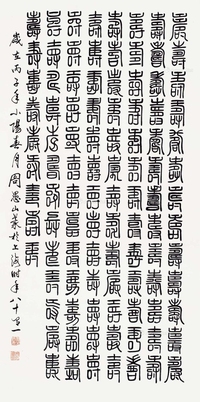 壽壽壽壽壽壽壽壽壽壽壽壽壽
壽壽壽壽壽壽壽壽壽壽壽壽壽
壽壽壽壽壽壽壽壽壽壽壽壽壽
壽壽壽壽壽壽壽壽壽壽壽壽壽
壽壽壽壽壽壽壽壽壽壽壽壽壽
壽壽壽壽壽壽壽壽壽壽壽壽壽
壽壽壽壽壽壽壽壽壽壽壽壽壽
壽壽壽壽壽壽壽壽壽
歲在丙子年小陽春月周愚山篆於上海时年八十一